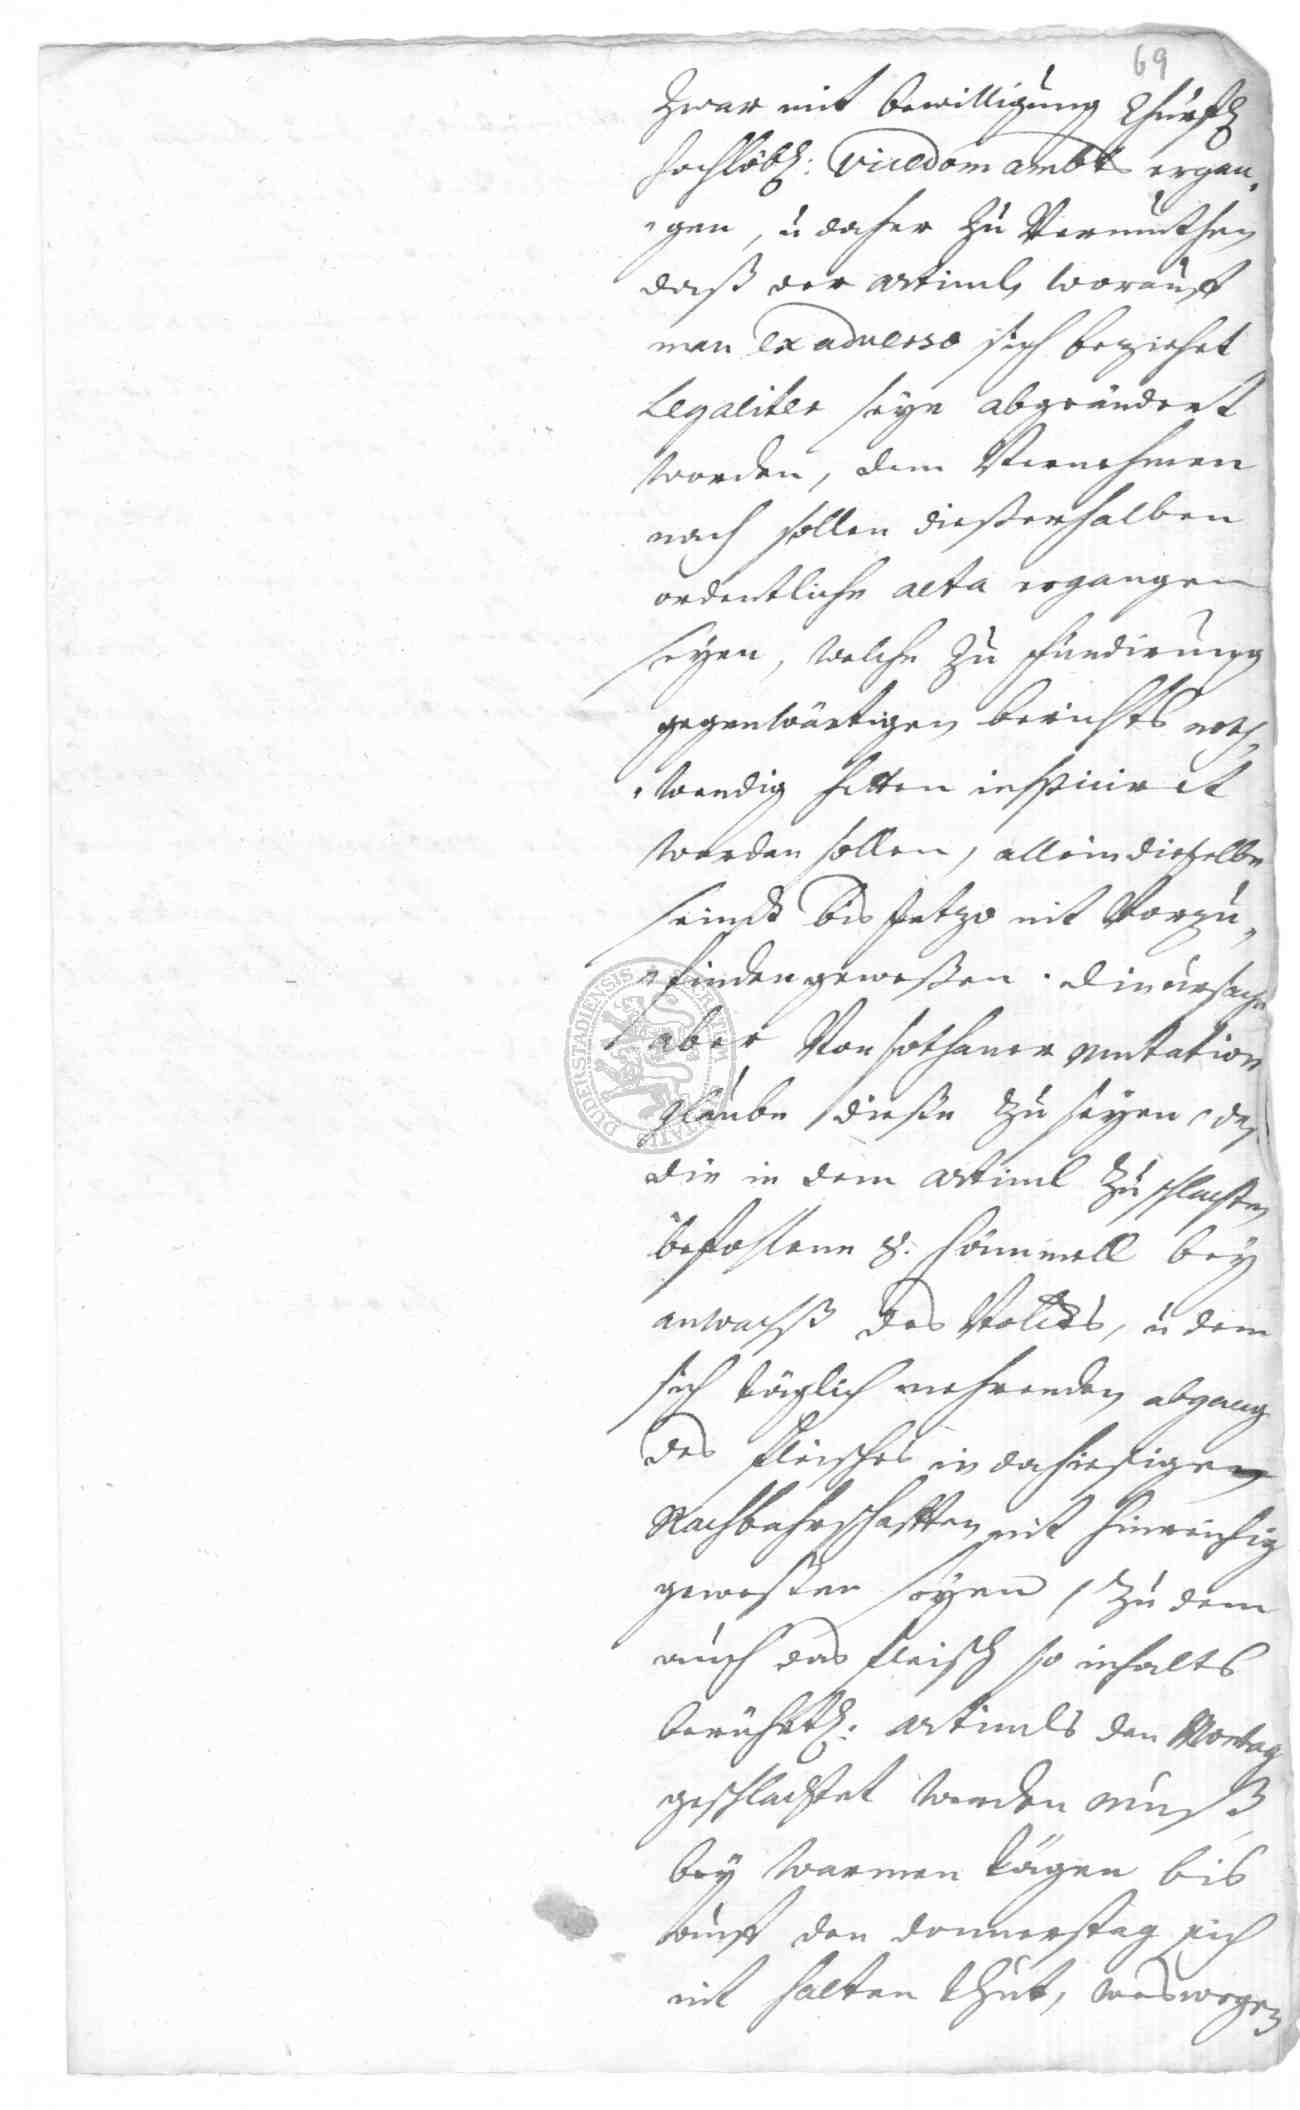 69
zwar mit bewilligung Churfl
hochlöbl: Vicedom ambts ergan,
"gen, ü daher zu Vermuthen
daß der articul, worauff
man ex adverso sich beziehet
Legaliter seye abgeändert
worden, dem Vernehmen
nach sollen dießerhalben
ordentliche acta ergangen
seyen, welche zu fundirung
gegenwärtigen berichts noth,
"wendig hetten inspiciret
werden sollen, allein dießelbe
seindt bis jetzo nit Vorzu,
"finden geweßen. die ursache
aber Von sothaner mutation
glaube dieße zu seyen, das
die in dem articul zu schlachten
befohlene 8. hämmell bey
anwachß des Volcks, ü dem
sich täglich mehrenden abgang
des fleisches in dahiesigen
Nachbahrschafften nit hinreichig
geweßen seyen, zu dem
auch das fleisch so inhalts
berührtl: articuls den Montag
geschlachtet werden muß,
bey warmen tägen bis
auff den donnerstag sich
nit halten thut, weswegen
DUDERSTADIENSIS